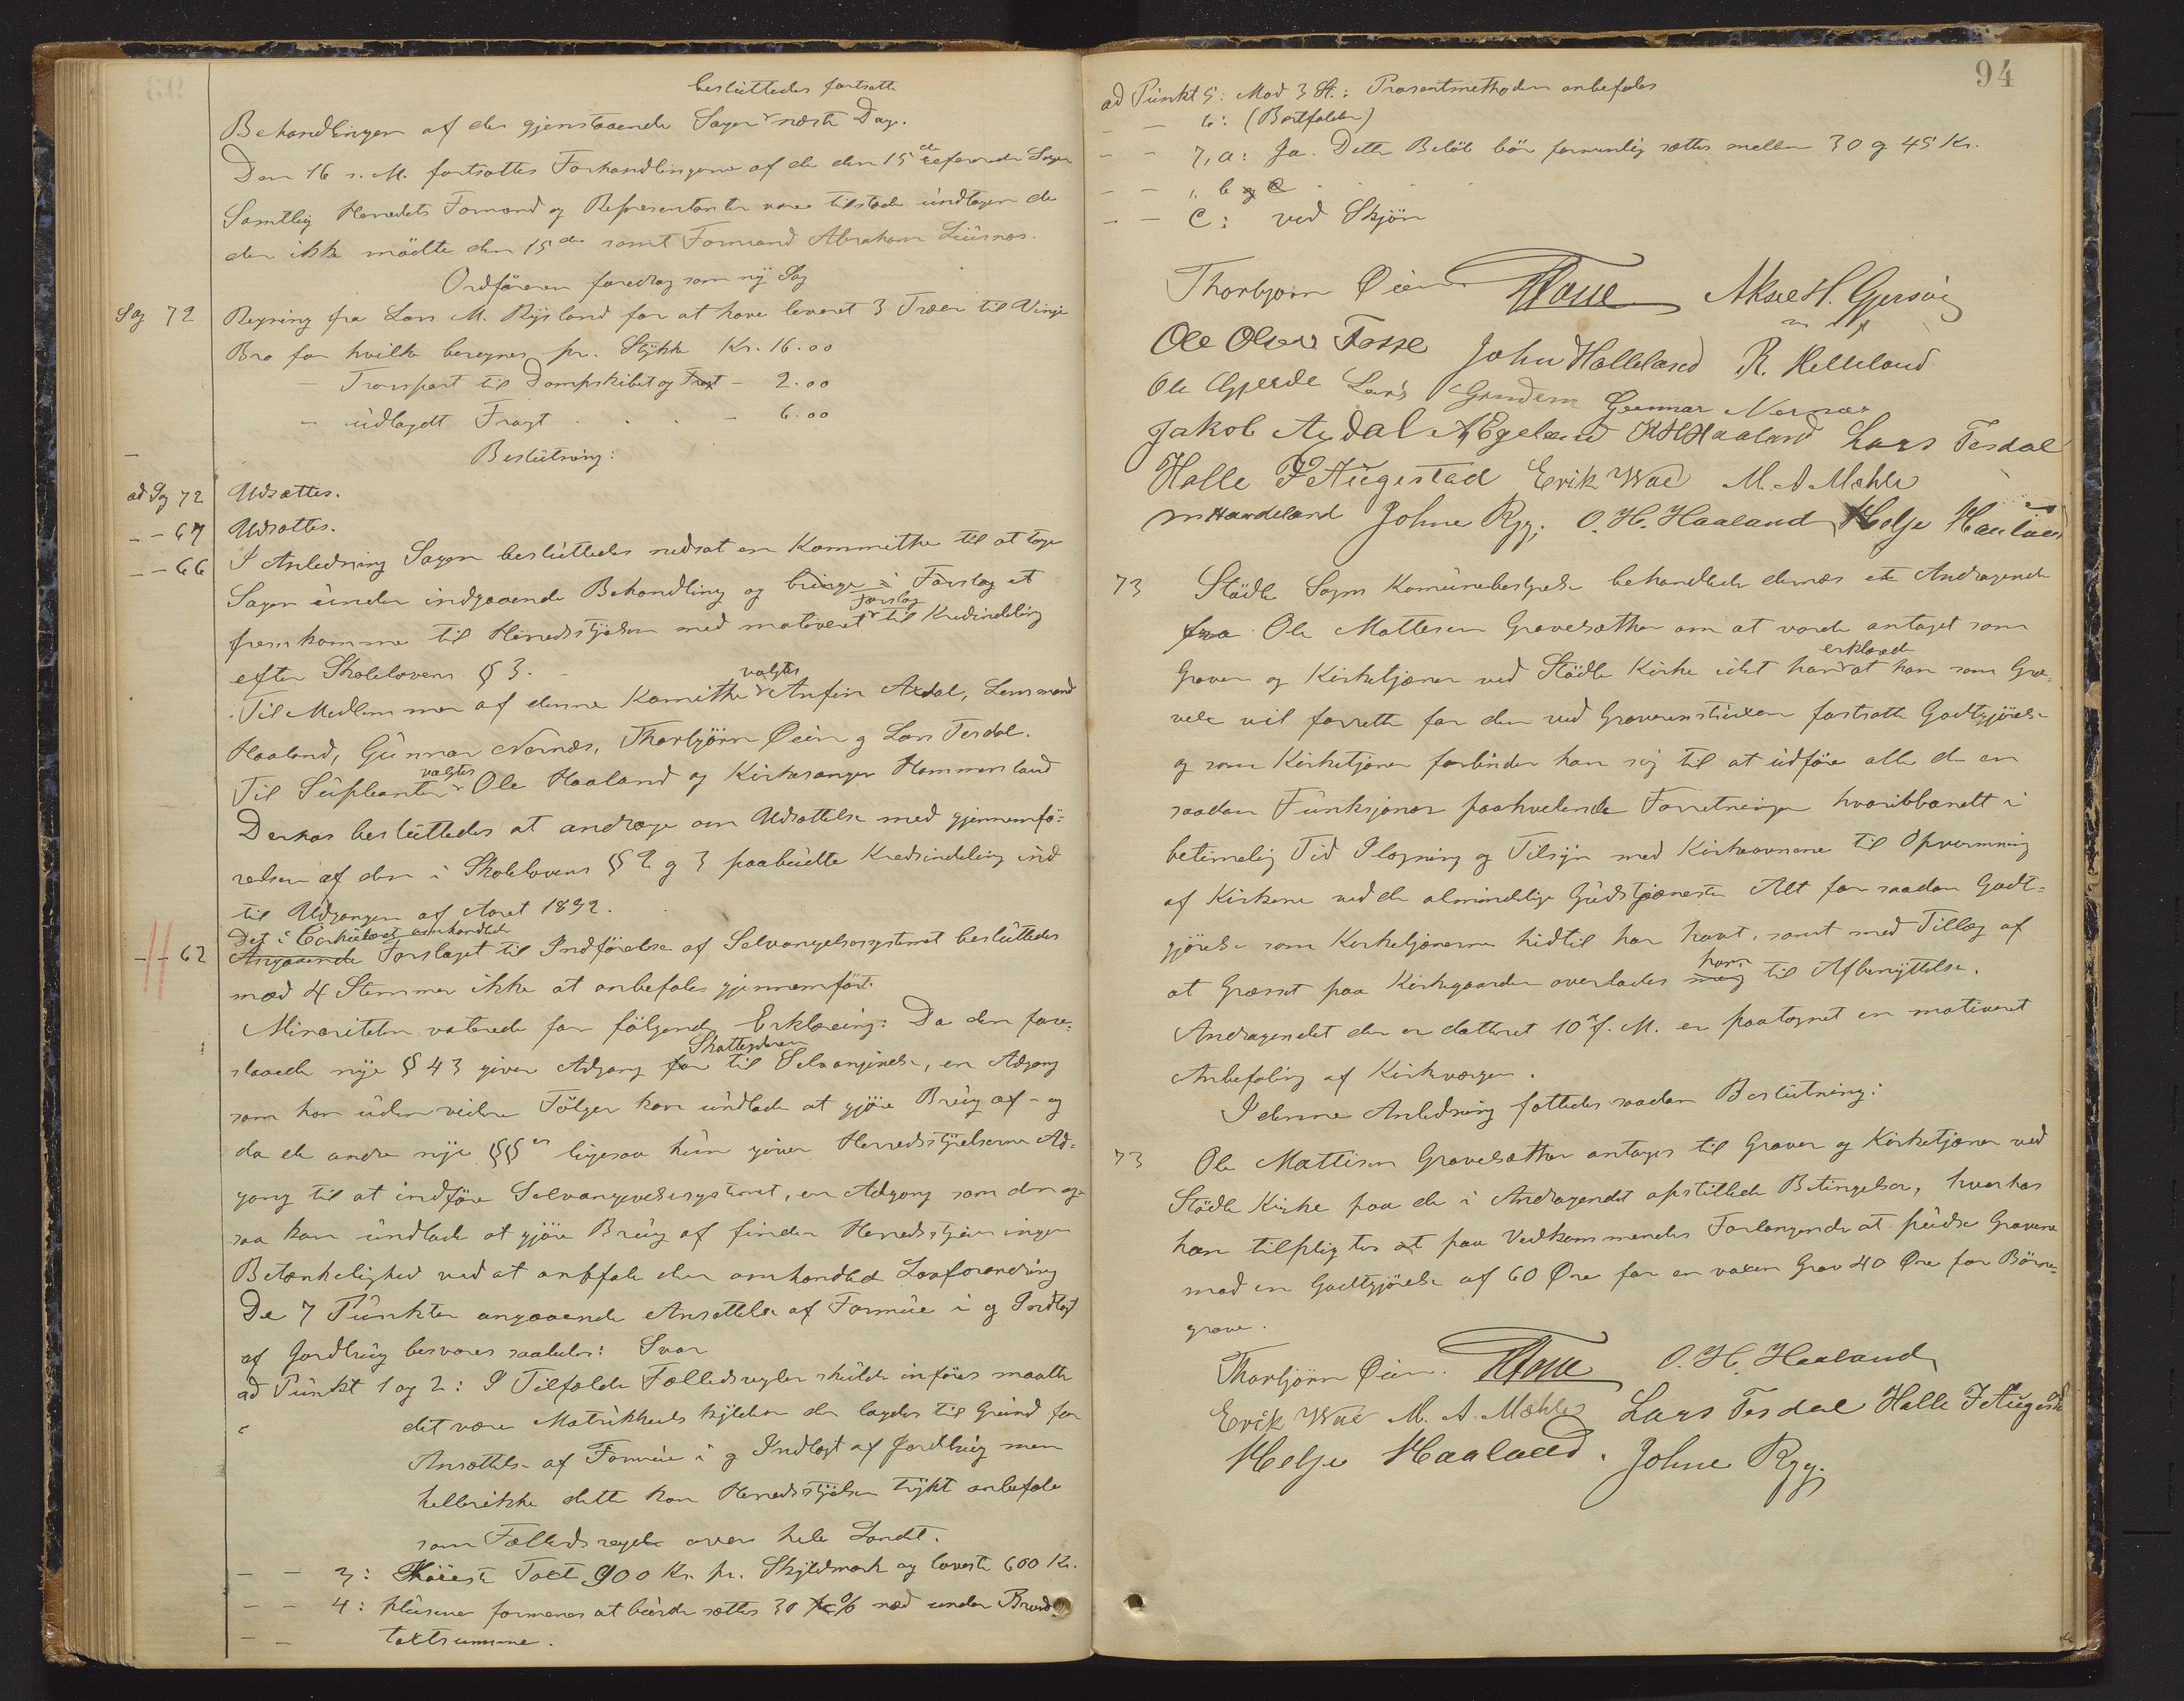 besluttedes fortsatt
Behandlingen af de gjenstaaende Sager næste Dag.
Den 16 s. M. fortsattes Forhandlingerne af de den 15de refererede Sager
Samtlig Herredets Formænd og Repræsentanter vare tilstede undtagen de
der ikke mødte den 15de samt Formand Abraham
Ordføreren foredrog som ny Sag
Sag 72 Regning fra Lars M. Rysland for at have leveret 3 Træer til Vinje
Bro for hvilke beregnes pr. Stykke Kr. 16.00
- Transport til Dampskibet og Fragt - 2.00
- udlagdt Fragt . . . - 6.00
Beslutning:
ad Sag 72 Udsættes.
- - 67 Udsættes.
- - 66 I Anledning Sagen besluttedes nedsat en Kommithe til at tage
Sagen under indgaaende Behandling og bringe i Forslag et
Forslag
fremkomme til Herredsstyrelsen med motiveret til Kredsinddeling
efter Skolelovens § 3.
valgtes
Til Medlemmer af denne Kamithe Anfin Axdal, Lensmand
Haaland, Gunnar Nernæs, Thorbjørn Øien og Lars Tesdal.
valgtes
Til Supleanter Ole Haaland og Kirkesanger Hammersland
Derhos besluttedes at andrage om Udsættelse med gjennemfø-
relsen af den i Skolelovens §§ 2 og 3 paabudte Kredsinddeling ind
til Udgangen af Aaret 1892.
Det i Cirkulæret omhandlede
- - 62 Angaaende Forslaget til Indførelse af Selvangivelsessystemet besluttedes
mod 4 Stemmer ikke at anbefales gjennemført.
Minoriteten voterede for følgende Erklæring: Da den fore-
Skatteyderen
slaaede nye § 43 giver Adgang for til Selvangivelse, en Adgang
som han uden videre Følger kan undlade at gjøre Brug af - og
da de andre nye §§er ligesaa kun giver Herredsstyrelserne Ad-
gang til at indføre Selvangivelsessystemet, en Adgang som den og-
saa kan undlade at gjøre Brug af finder Herredsstyrelsen ingen
Betænkelighed ved at anbefale den omhandlede Lovforandring
De 7 Punkter angaaende Ansættelse af Formue i og Indtægt
af Jordbrug besvares saaledes: Svar
ad Punkt 1 og 2: I Tilfælde Fællesregler skulde indføres maatte
det være Matrikkelskylden der lagdes til Grund for
Ansættelse af Formue i og Indtægt af Jordbrug men
hellerikke dette kan Herredsstyrelsen trykt anbefale
som Fællesregel over hele Landet.
- - 3: Høieste Taxt 900 Kr. pr. Skyldmark og laveste 600 Kr.
- - 4: Husene formenes at burde sættes 30 % ned under Brand-
- - taxtsumme.
94
ad Punkt 5: Mod 3 St.: Prosentmethoden anbefales
- - 6: (Bortfalder)
- - 7, a: Ja. Dette Beløb bør formentlig sættes mellem 30 og 45 Kr.
- - " b og c
- - C: ved Skjøn
Thorbjørn Øien Aksel H. Gjersvig
Ole Olsen Fosse John Halleland R. Helleland
Ole Gjerde Lars Grindem Gunnar Nernæs
Jakob Axdal A Egeland K H Haaland Lars Tesdal
Halle J Augestad Erik Wae M. A Mæhle
M Handeland Johne Rygg O. H. Haaland Helje Haaland
73 Stødle Sogns Kamunebestyrelse behandlede dernæs et Andragende
fra Ole Mattesen Gravesæther om at vorde antaget som
erklærede
Graver og Kirketjener ved Stødle Kirke idet han at han som Gra-
ver vil forrette for den ved Graverenstruxen fastsatte Godtgjørelse
og som Kirketjener forbinder han sig til at udføre alle de en
saadan Funksjonær paahvilende Forretninger hvoriblandt i
betimelig Tid Ilægning og Tilsyn med Kirkeovnene til Opvarmning
af Kirkene ved de almindelige Gudstjenester Alt for saadan Godt-
gjørelse som Kirketjenerne hidtil har havt, samt med Tillæg af
ham
at Græsset paa Kirkegaarden overlades mig til Afbenyttelse.
Andragendet der er dateret 10 f. M. er paategnet en motiveret
Anbefaling af Kirkevergen.
I denne Anledning fattedes saadan Beslutning:
73 Ole Mattisen Gravesæther antages til Graver og Kirketjener ved
Stødle Kirke paa de i Andragendet opstillede Betingelser, hvorhos
han tilpligtes at paa Vedkommendes Forlangende at pudse Gravene
mod en Godtgjørelse af 60 Øre for en voxen Grav 40 Øre for Børne-
grave.
Thorbjørn Øien. O. H. Haaland
Erik Wae M. A. Mæhle Lars Tesdal Halle J Augestad
Helje Haaland. Johne Rygg.